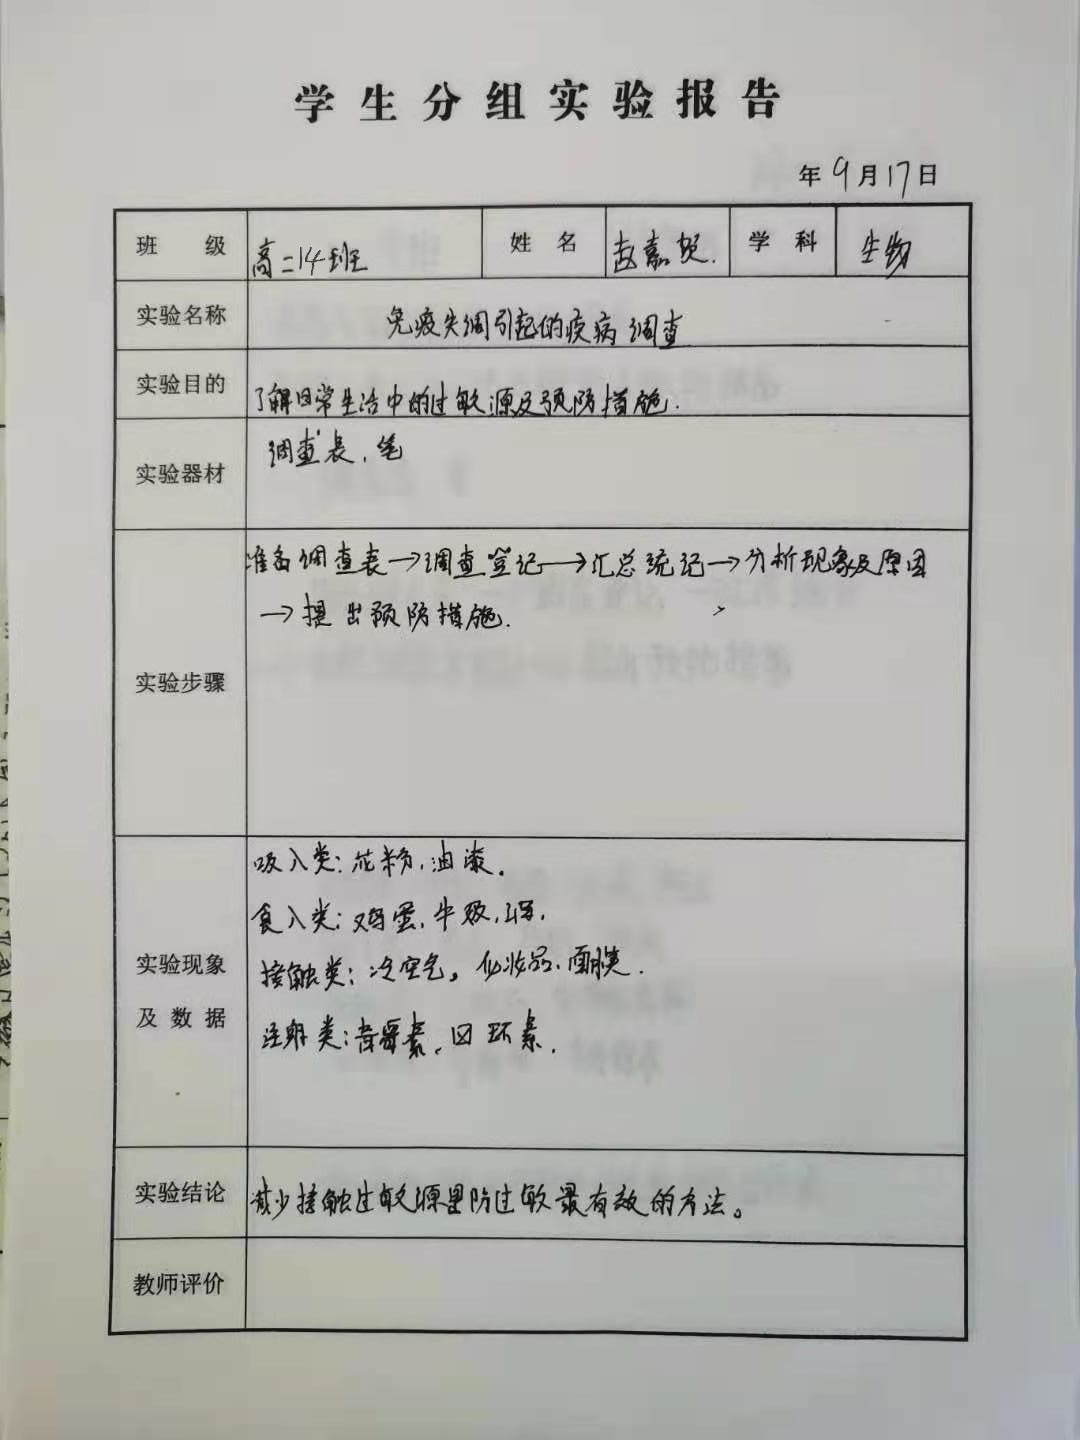 学生分组实验报告
年9月17日
班级 高二14班 姓名 赵嘉贺. 学科 生物
实验名称 免疫失调引起的疾病调查
实验目的 了解日常生活中的过敏源及预防措施.
实验器材 调查表、笔
准备调查表→调查登记→汇总统记→分析现象及原因
→提出预防措施.
实验步骤
吸入类:花粉,油漆.
食入类:鸡蛋,牛奶,
接触类:冷空气。化妆品、面膜.
实验现象
及数据
注射类:青霉素、四环素.
实验结论 减少接触过敏源是防过敏最有效的方法。
教师评价